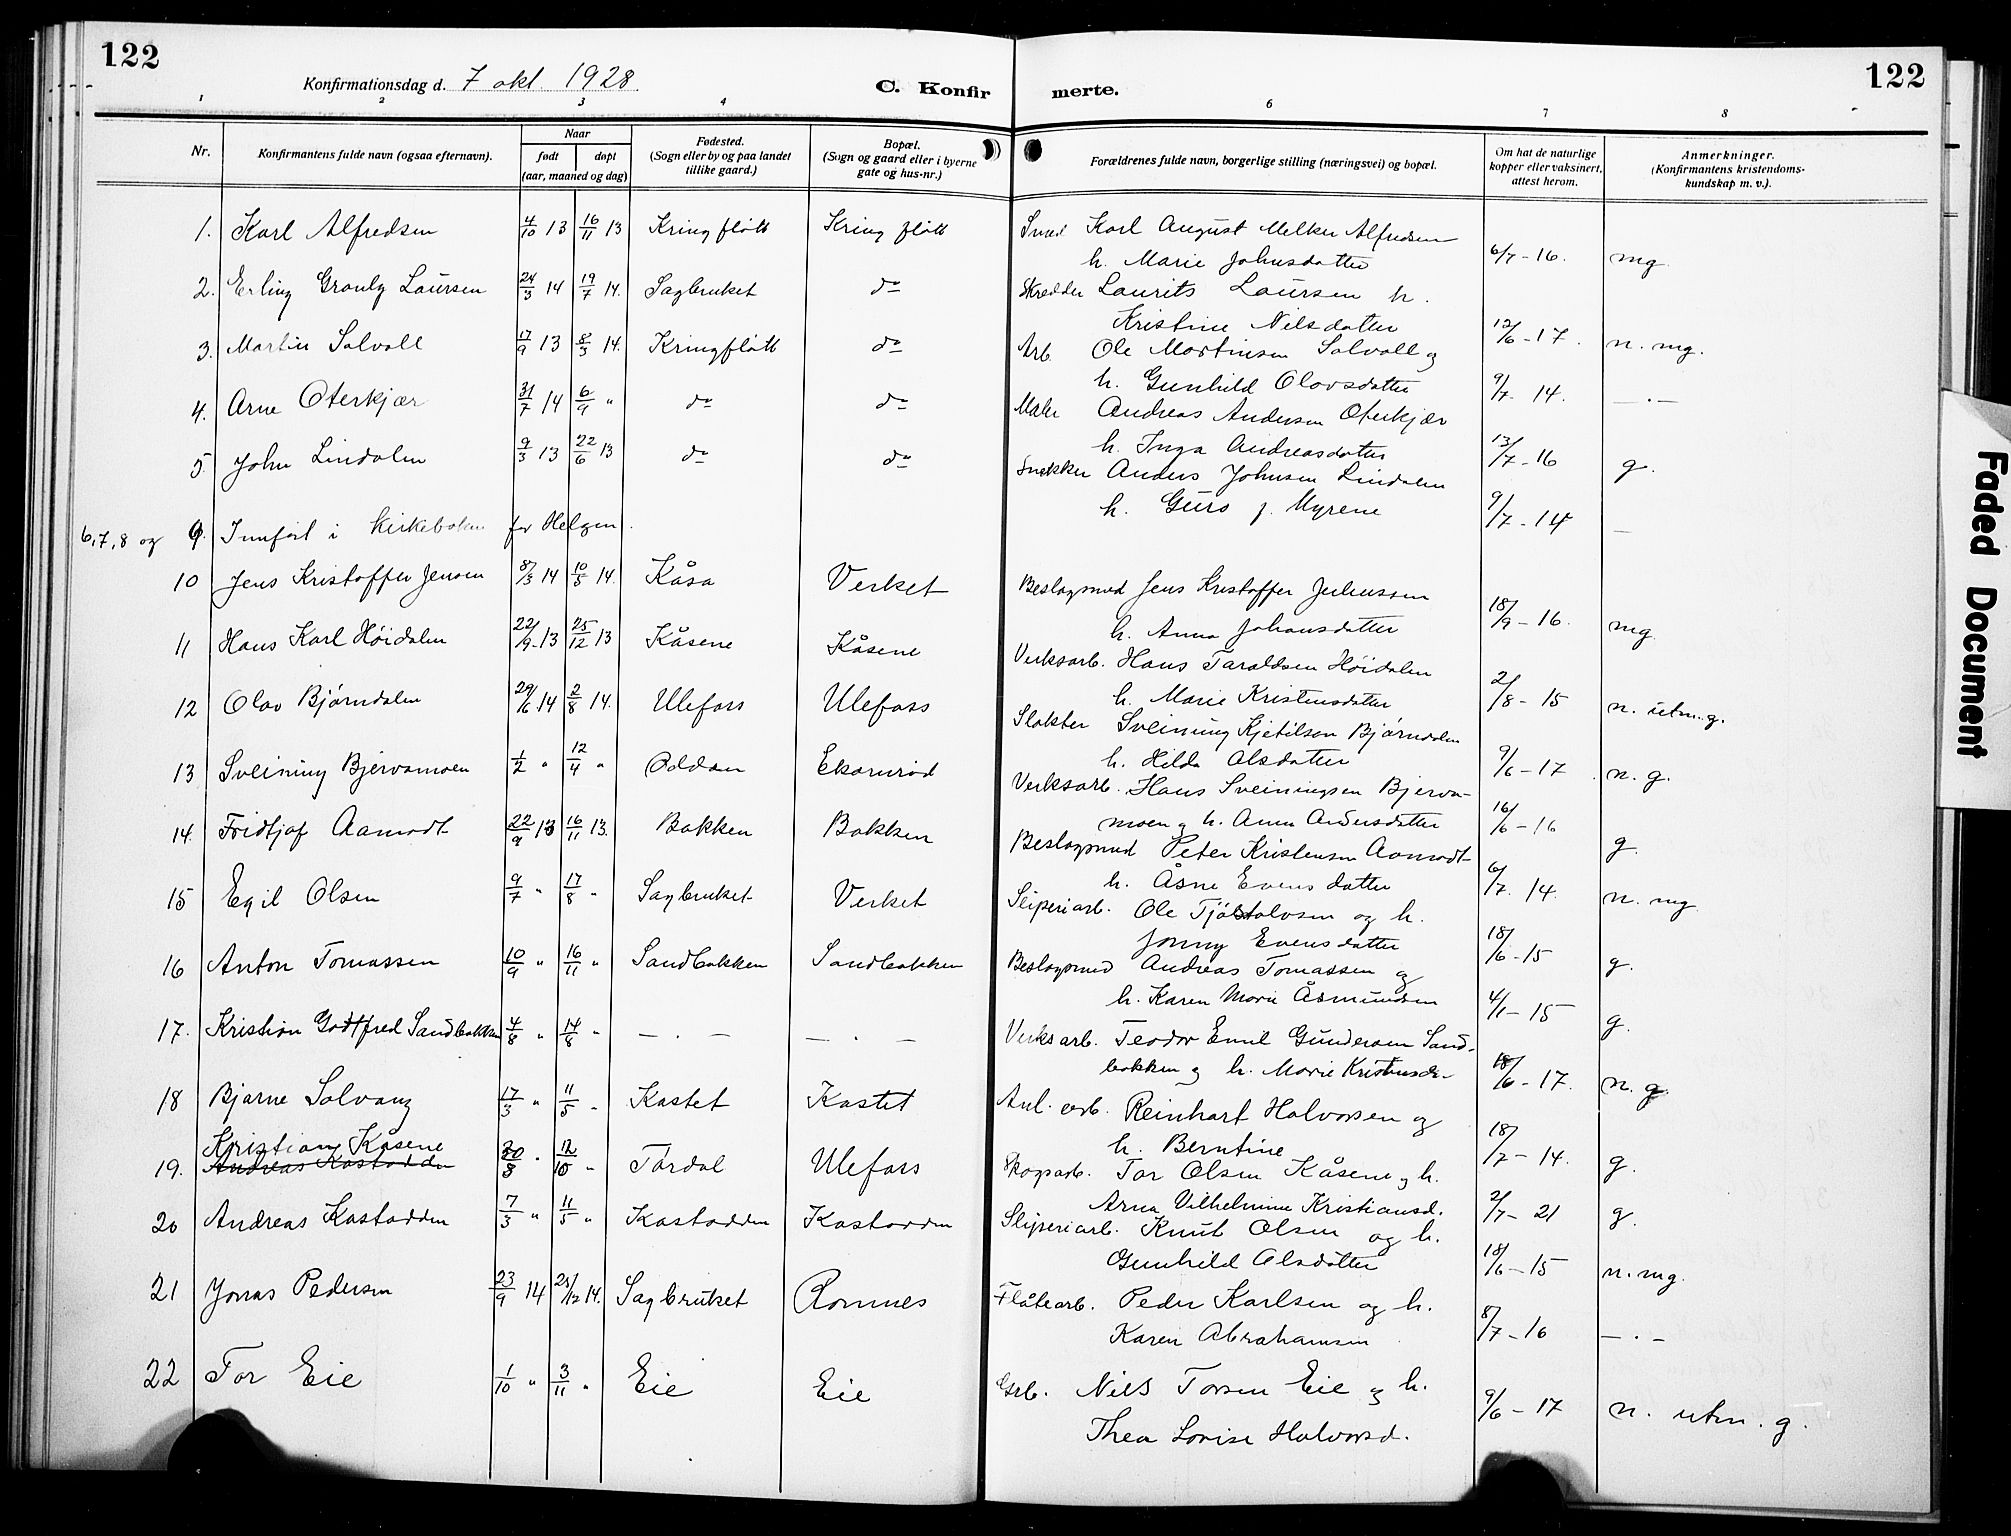 122
122
Konfirmationsdag d. 7 okt. 1928.
C. Konfir
merte.
1 2 3 4 6 7 8
Nr.
Konfirmantens fulde navn (ogsaa efternavn).
Naar
født døpt
(aar, maaned og dag)
Fødested.
(Sogn eller by og paa landet
tillike gaard.)
Bopæl.
(Sogn og gaard eller i byerne
gate og hus-nr.)
Forældrenes fulde navn, borgerlige stilling (næringsvei) og bopæl.
Om hat de naturlige
kopper eller vaksinert,
attest herom.
Anmerkninger.
(Konfirmantens kristendoms-
kundskap m. v.).
1. Karl Alfredsen 4/10 13 16/11 13 Kringflått Kringflått Smed Karl August Melker Alfredsen
h. Marie Johnsdatter 6/7 - 16. mg.
2. Erling Granly Laursen 24/3 14 19/7 14. Sagbruket do Skredder Laurits Laursen h.
Kristine Nilsdatter 12/6 - 17. n. mg.
3. Martin Solvoll 17/9 13 8/3 14. Kringflått do Arb. Ole Martinsen Solvoll og
h. Gunhild Olavsdatter 9/7 - 14. — . —
4. Arne Oterkjær 31/7 14 6/9 " do do Maler Andreas Andersen Oterkjær
h. Inga Andreasdatter 13/7 - 16 g.
5. John Lindalen 9/3 13 22/6 13 do do Snekker Anders Johnsen Lindalen
h. Guro f. Myrene 9/7 - 14 —
6, 7, 8 og 9. Innført i kirkeboken for Helgen.
10 Jens Kristoffer Jensen 8/3 14 10/5 14. Kåsa Verket Beslagsmed Jens Kristoffer
h. Anna Johansdatter 18/9 - 16. mg.
11 Hans Karl Høidalen 22/9 - 13 25/12 13 Kåsene Kåsene Verksarb. Hans Taraldsen Høidalen
h. Marie Kristensdatter 2/8 - 15 n. utm. g.
12 Olav Bjørndalen 29/6 14 2/8 14. Ulefoss Ulefoss Slakter Sveinung Kjetilsen Bjørndalen
h. Hilda Olsdatter 9/6 - 17 n. g.
13 Sveinung Bjervamoen 1/2 " 12/4 " Oddan Ekornrød Verksarb. Hans Sveinungsen Bjerva-
moen og h. Anne Andersdatter 16/6 - 16 g.
14. Fridtjof Aamodt 22/9 13 16/11 13. Bakken Bakken Beslagsmed Peter Kristensen Aamodt
h. Åsne Evensdatter 6/7. 14. n. mg.
15 Egil Olsen 9/7 " 17/8 " Sagbruket Verket Sliperiarb. Ole Tjøstolvsen og h.
Jonny Evensdatter 18/6 - 15 g.
16 Anton Tomassen 10/9 " 16/11 " Sandbakken Sandbakken Beslagsmed Andreas Tomassen og
h. Karen Marie Åsmundsen 4/1 - 15 g.
17. Kristian Godtfred Sandbakken 4/8 " 14/8 " — . — — . — Verksarb. Teodor Emil Gundersen Sand-
bakken og h. Marie Kristensdr. 18/6 - 17. n. g.
18 Bjarne Solvang 17/3 " 11/5 " Kastet Kastet Anl. arb. Reinhart Halvorsen og
h. Berntine 18/7 - 14. g.
Kristian Kåsene
19. Andreas Kastodden 30/8 " 12/10 " Tørdal Ulefoss Skogsarb. Tor Olsen Kåsene og h.
Arna Vilhelmine Kristiansd. 2/7 - 21 g.
20 Andreas Kastodden 7/3 " 11/5 " Kastodden Kastodden Sliperiarb. Knut Olsen og h.
Gunhild Olsdatter 18/6 - 15 n. mg.
21 Jonas Pedersen 23/9 14 25/12 14. Sagbruket Romnes Fløtearb. Peder Karlsen og h.
Karen Abrahamsen 8/7 - 16 — . —
22 Tor Eie 1/10 " 3/11 " Eie Eie Grb. Nils Torsen Eie og h.
Thea Lovise Halvorsd. 9/6 - 17 n. utm. g.
Faded Document